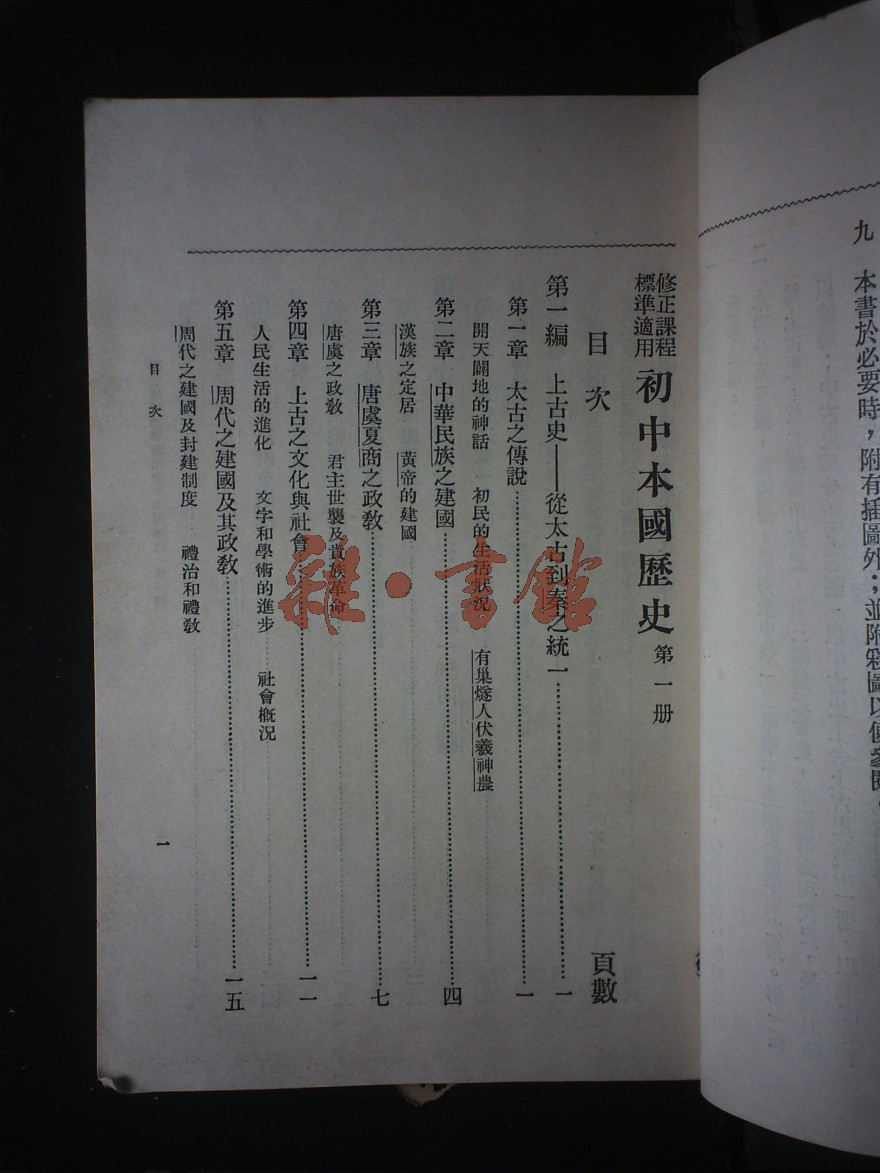 九　本書於必要時，附有插圖外；並附彩圖以便參閱。
修正課程標準適用　初中本國歷史　第一册
目次　頁數
第一編　上古史——從太古到秦之統一……一
第一章　太古之傳說……一
開天闢地的神話　初民的生活狀況　有巢燧人伏羲神農
第二章　中華民族之建國……四
漢族之定居　黃帝的建國
第三章　唐虞夏商之政教……七
唐虞之政教　君主世襲及貴族革命
第四章　上古之文化與社會……一一
人民生活的進化　文字和學術的進步　社會概況
第五章　周代之建國及其政教……一五
周代之建國及封建制度　禮治和禮教
目次　一
雜·書館